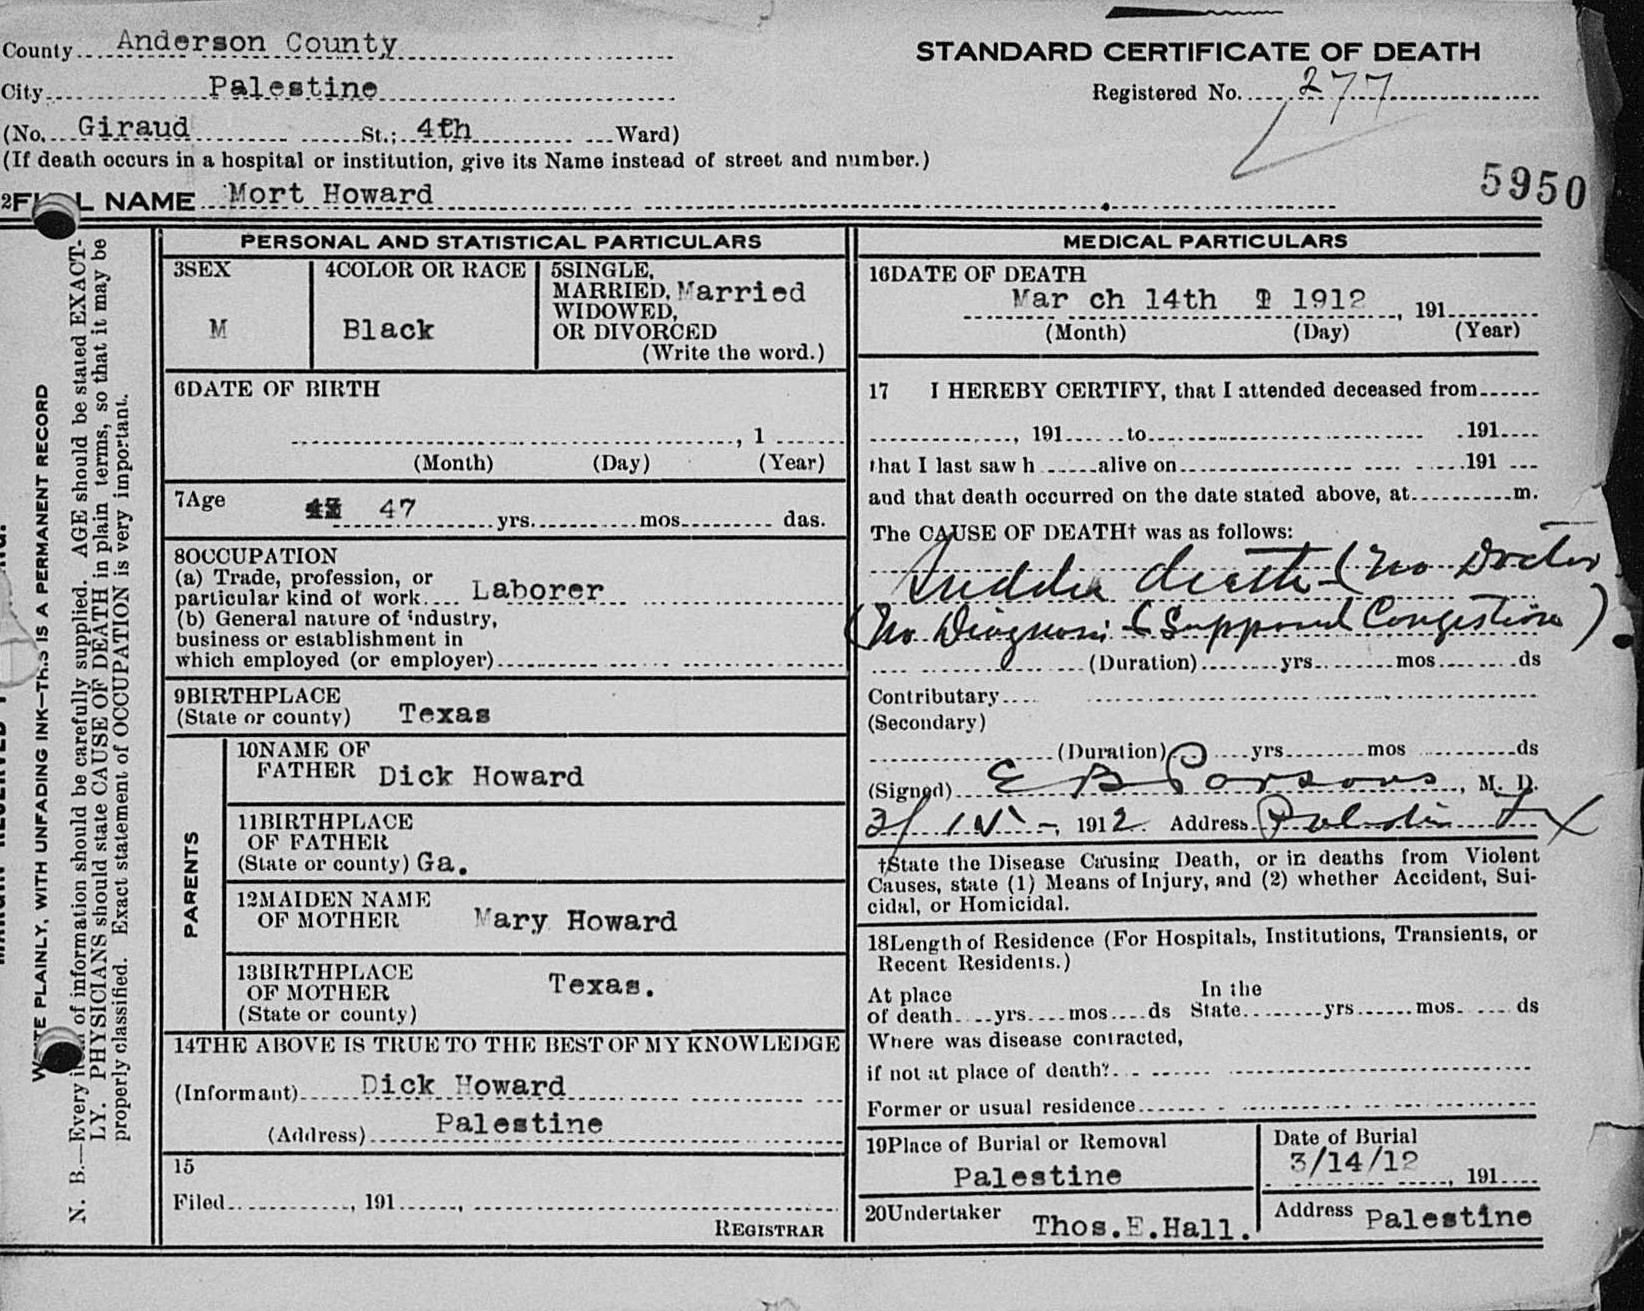 County Anderson County
STANDARD CERTIFICATE OF DEATH
City Palestine
Registered No. 277
(No. Giraud St.; 4th Ward)
(If death occurs in a hospital or institution, give its Name instead of street and number.)
5950
2F L NAME Mort Howard
WRITE PLAINLY, WITH UNFADING INK—THIS IS A PERMANENT RECORD
N. B.—Every it of information should be carefully supplied. AGE should be stated EXACT-
LY. PHYSICIANS should state CAUSE OF DEATH in plain terms, so that it may be
properly classified. Exact statement of OCCUPATION is very important.
PERSONAL AND STATISTICAL PARTICULARS
3SEX
M
4COLOR OR RACE
Black
5SINGLE,
MARRIED, Married
WIDOWED,
OR DIVORCED
(Write the word.)
6DATE OF BIRTH
, 1
(Month) (Day) (Year)
7Age 47 yrs. mos. das.
8OCCUPATION
(a) Trade, profession, or
particular kind of work Laborer
(b) General nature of industry,
business or establishment in
which employed (or employer)
9BIRTHPLACE
(State or county) Texas
PARENTS
10NAME OF
FATHER Dick Howard
11BIRTHPLACE
OF FATHER
(State or county) Ga.
12MAIDEN NAME
OF MOTHER Mary Howard
13BIRTHPLACE
OF MOTHER Texas.
(State or county)
14THE ABOVE IS TRUE TO THE BEST OF MY KNOWLEDGE
(Informant) Dick Howard
(Address) Palestine
15
Filed , 191 ,
REGISTRAR
MEDICAL PARTICULARS
16DATE OF DEATH
Mar ch 14th 1912 , 191
(Month) (Day) (Year)
17 I HEREBY CERTIFY, that I attended deceased from
, 191 to 191
that I last saw h alive on 191
and that death occurred on the date stated above, at m.
The CAUSE OF DEATH† was as follows:
Sudden death (No Doctor
(No Diagnosis & Supposed Congestion)
(Duration) yrs. mos. ds
Contributary
(Secondary)
(Duration) yrs. mos ds
(Signed) E B Parsons, M. D.
1912 Address Palestine Tx
†State the Disease Causing Death, or in deaths from Violent
Causes, state (1) Means of Injury, and (2) whether Accident, Sui-
cidal, or Homicidal.
18Length of Residence (For Hospitals, Institutions, Transients, or
Recent Residents.)
At place In the
of death yrs. mos. ds State yrs. mos. ds
Where was disease contracted,
if not at place of death?
Former or usual residence
19Place of Burial or Removal
Palestine
Date of Burial
3/14/12 , 191
20Undertaker Thos.E.Hall.
Address Palestine